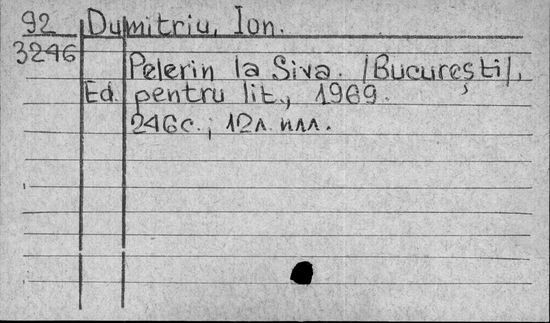 92 Dumitriu, Ion.
3246
Pelerin la Siva. /București/,
Ed. pentru lit., 1969.
246с.; 12л. илл.